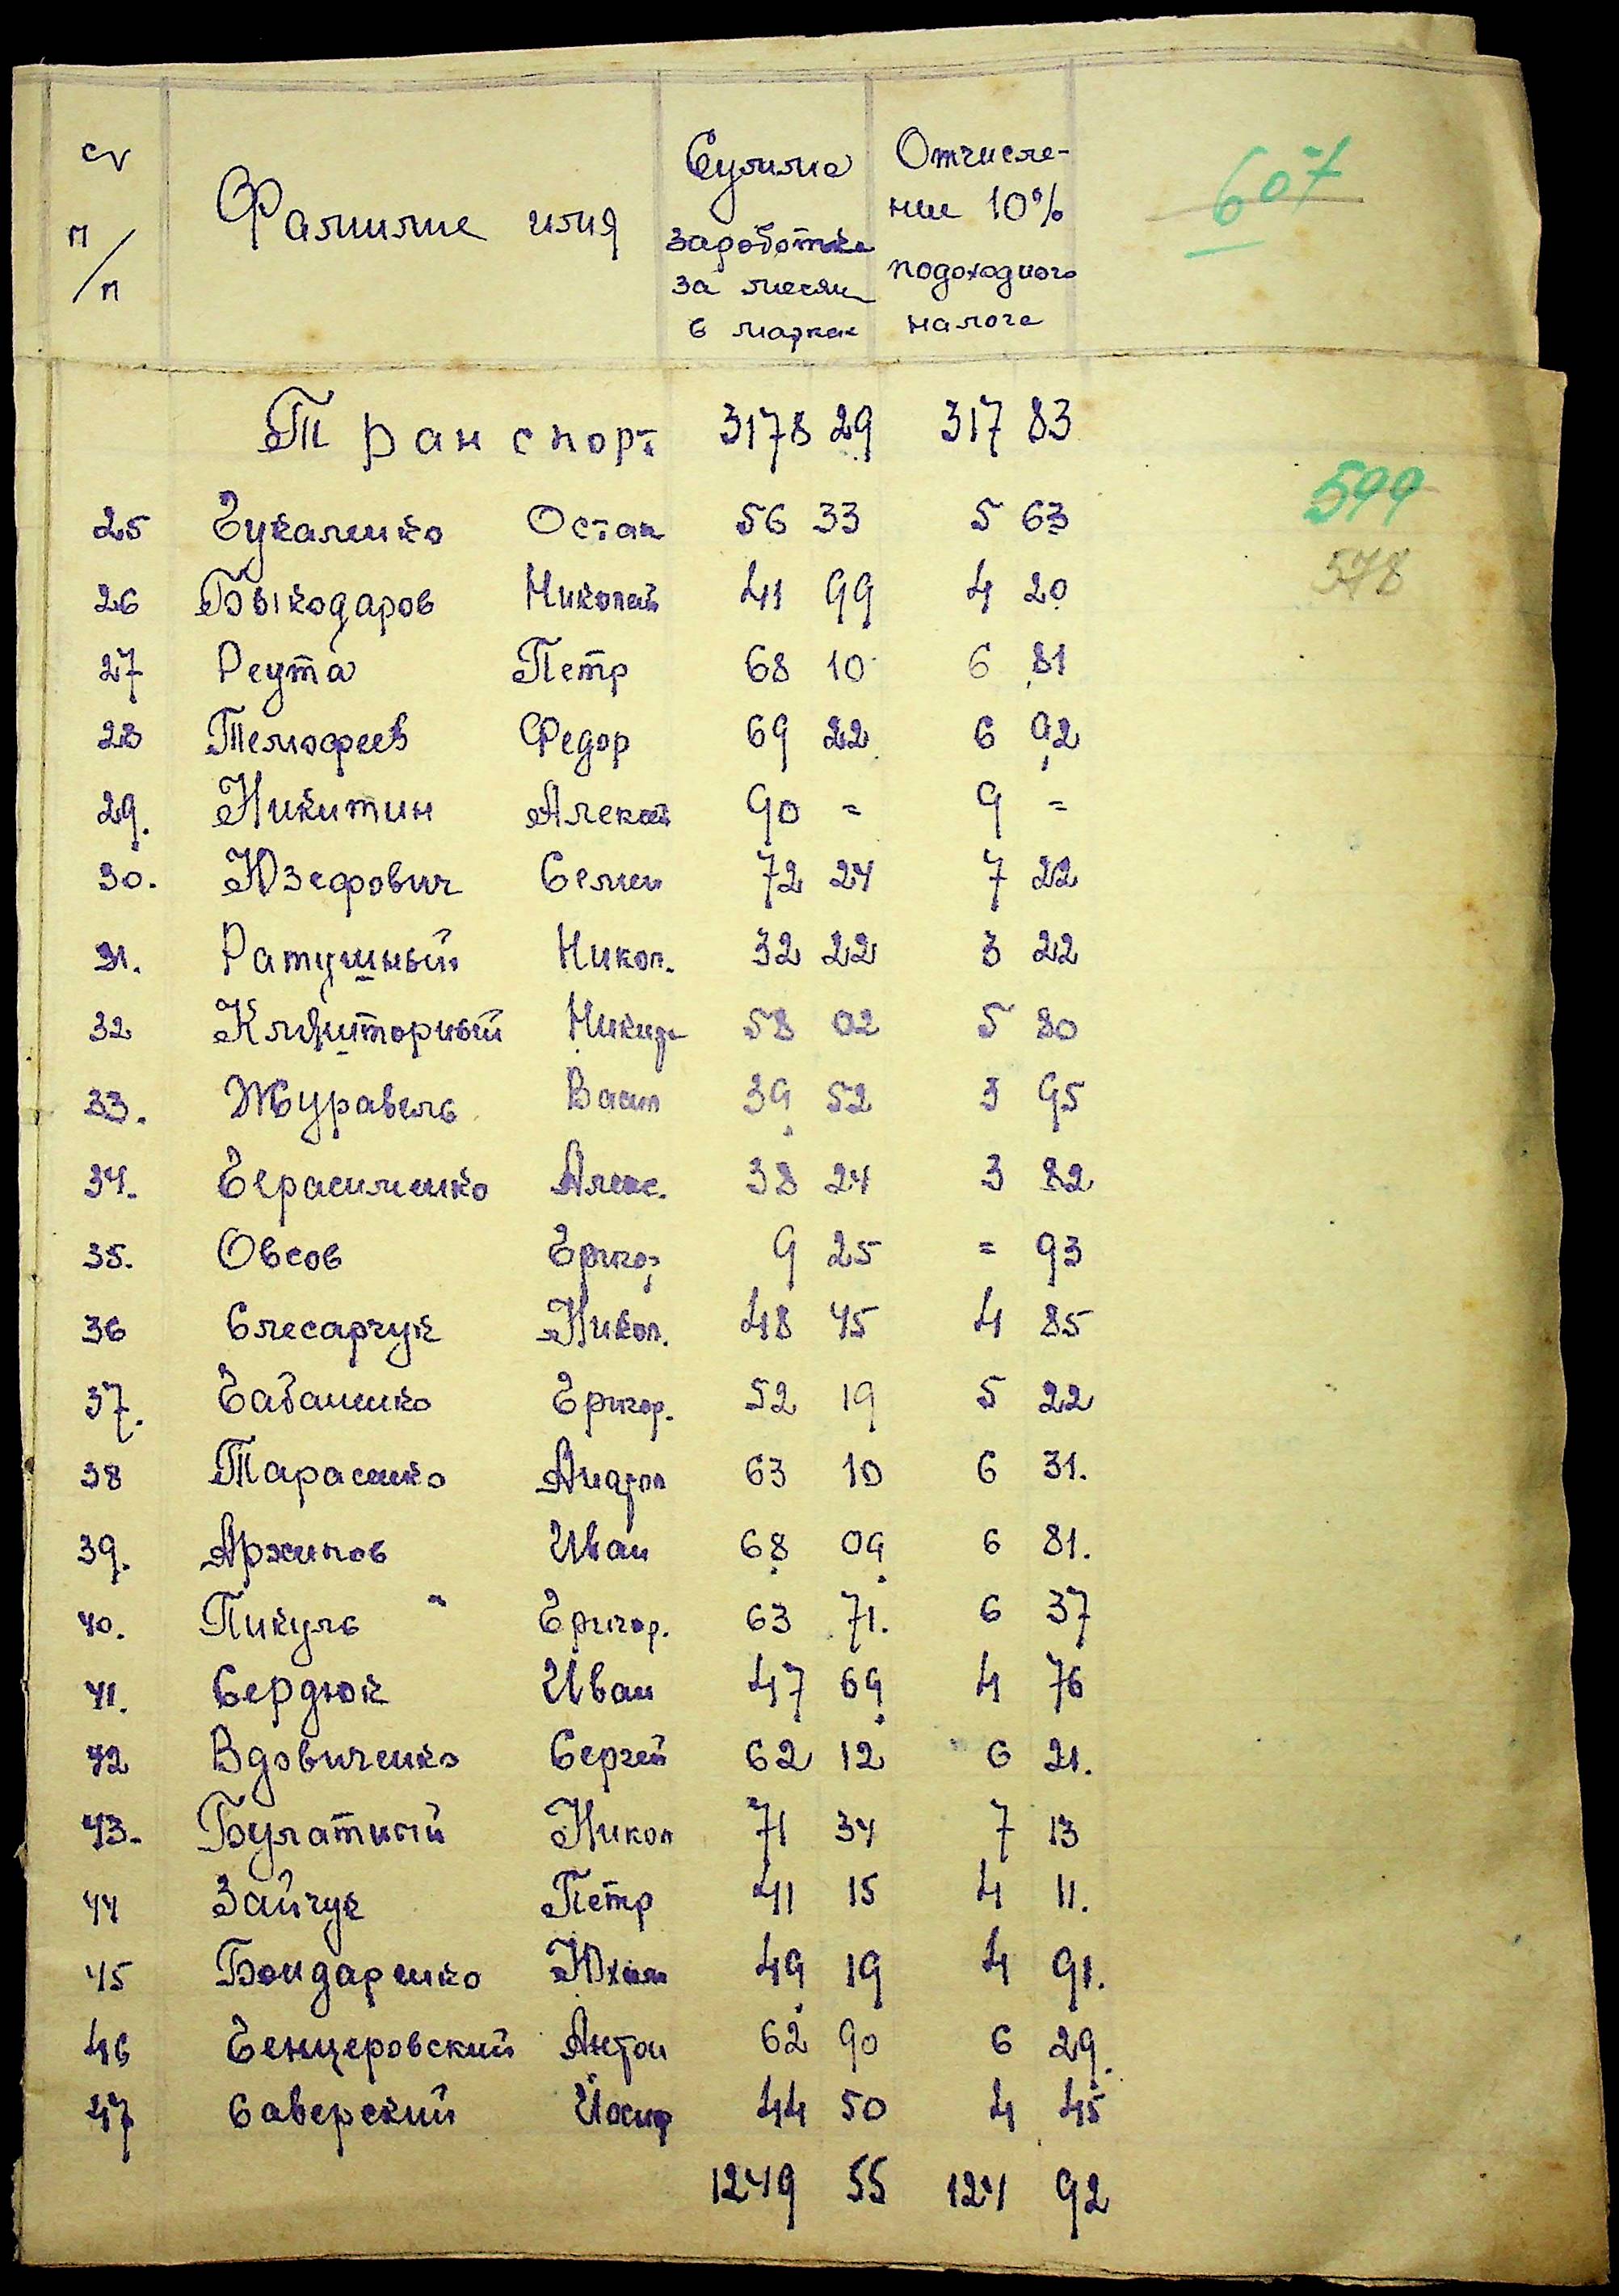 № п/п
Фамилие имя
Сумма заработка за месяц в марках
Отчисление 10% подоходного налога
607
Транспорт 3178 29 317 83
599
25 Гукаленко Остап 56 33 5 63
578
26 Быкодаров Николай 41 99 4 20
27 Реута Петр 68 10 6 81
28 Темофеев Федор 69 22 6 92
29. Никитин Алексей 90 = 9 =
30. Юзефович Семен 72 24 7 22
31. Ратушный Никол. 32 22 3 22
32 Никида 58 02 5 80
33. Журавель Васил 39 52 3 95
34. Герасименко Алекс. 38 24 3 82
35. Овсов Григор 9 25 = 93
36 Слесарчук Никол. 48 45 4 85
37. Габаненко Григор. 52 19 5 22
38 Тарасенко Андрон 63 10 6 31.
39. Архипов Иван 68 09 6 81.
40. Пикуль Григор. 63 71. 6 37
41. Сердюк Иван 47 69 4 76
42 Вдовиченко Сергей 62 12 6 21.
43. Булатный Никол 71 34 7 13
44 Зайчук Петр 41 15 4 11.
45 Бондаренко Юхим 49 19 4 91.
46 Генцеровский Антон 62 90 6 29.
47 Саверский Йосиф 44 50 4 45
1249 55 124 92